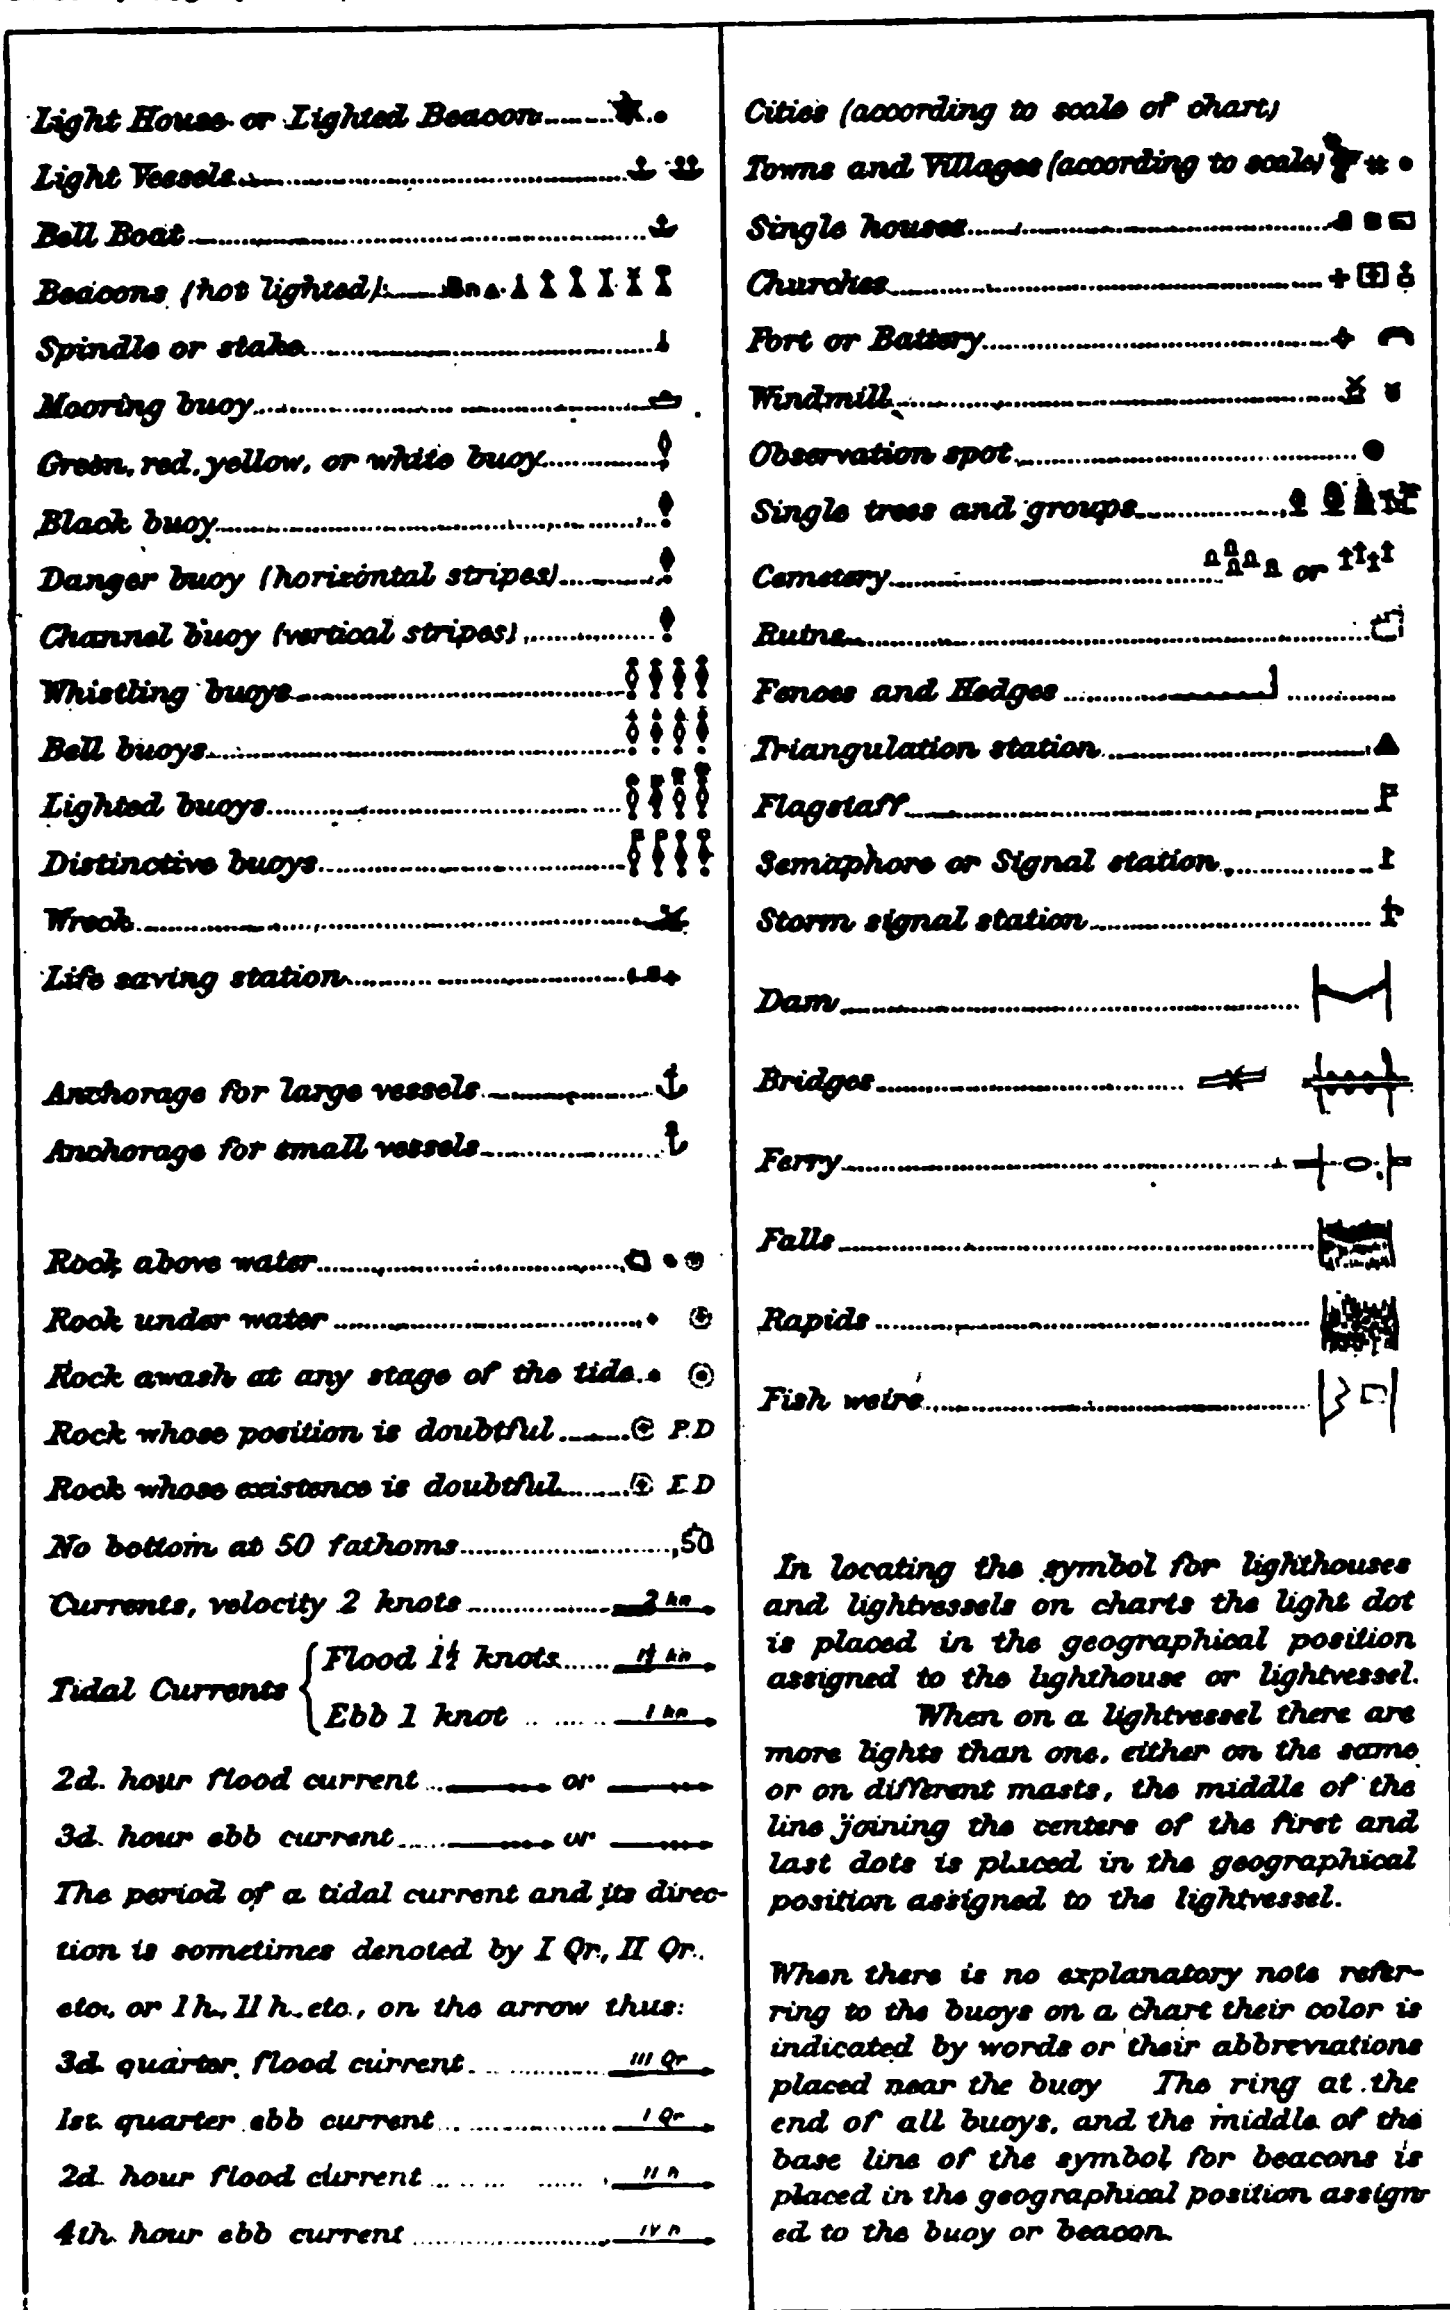 Light House or Lighted Beacon
Light Vessels
Bell Boat
Beacons (not lighted)
Spindle or stake
Mooring buoy
Green, red, yellow, or white buoy
Black buoy
Danger buoy (horizontal stripes)
Channel buoy (vertical stripes)
Whistling buoys
Bell buoys
Lighted buoys
Distinctive buoys
Wreck
Life saving station
Anchorage for large vessels
Anchorage for small vessels
Rock above water
Rock under water
Rock awash at any stage of the tide
Rock whose position is doubtful P.D
Rock whose existence is doubtful E.D
No bottom at 50 fathoms 50
Currents, velocity 2 knots 2 kn
Tidal Currents
Flood 1½ knots 1½ kn
Ebb 1 knot 1 kn
2d. hour flood current or
3d. hour ebb current or
The period of a tidal current and its direc-
tion is sometimes denoted by I Qr., II Qr.
etc., or I h., II h. etc., on the arrow thus:
3d quarter flood current III Qr
1st. quarter ebb current I Qr
2d. hour flood current II h
4th. hour ebb current IV h
Cities (according to scale of chart)
Towns and Villages (according to scale)
Single houses
Churches
Fort or Battery
Windmill
Observation spot
Single trees and groups
Cemetery or
Ruins
Fences and Hedges
Triangulation station
Flagstaff
Semaphore or Signal station
Storm signal station
Dam
Bridges
Ferry
Falls
Rapids
Fish weirs
In locating the symbol for lighthouses
and lightvessels on charts the light dot
is placed in the geographical position
assigned to the lighthouse or lightvessel.
When on a lightvessel there are
more lights than one, either on the same
or on different masts, the middle of the
line joining the centers of the first and
last dots is placed in the geographical
position assigned to the lightvessel.
When there is no explanatory note refer-
ring to the buoys on a chart their color is
indicated by words or their abbreviations
placed near the buoy The ring at the
end of all buoys, and the middle of the
base line of the symbol for beacons is
placed in the geographical position assign-
ed to the buoy or beacon.